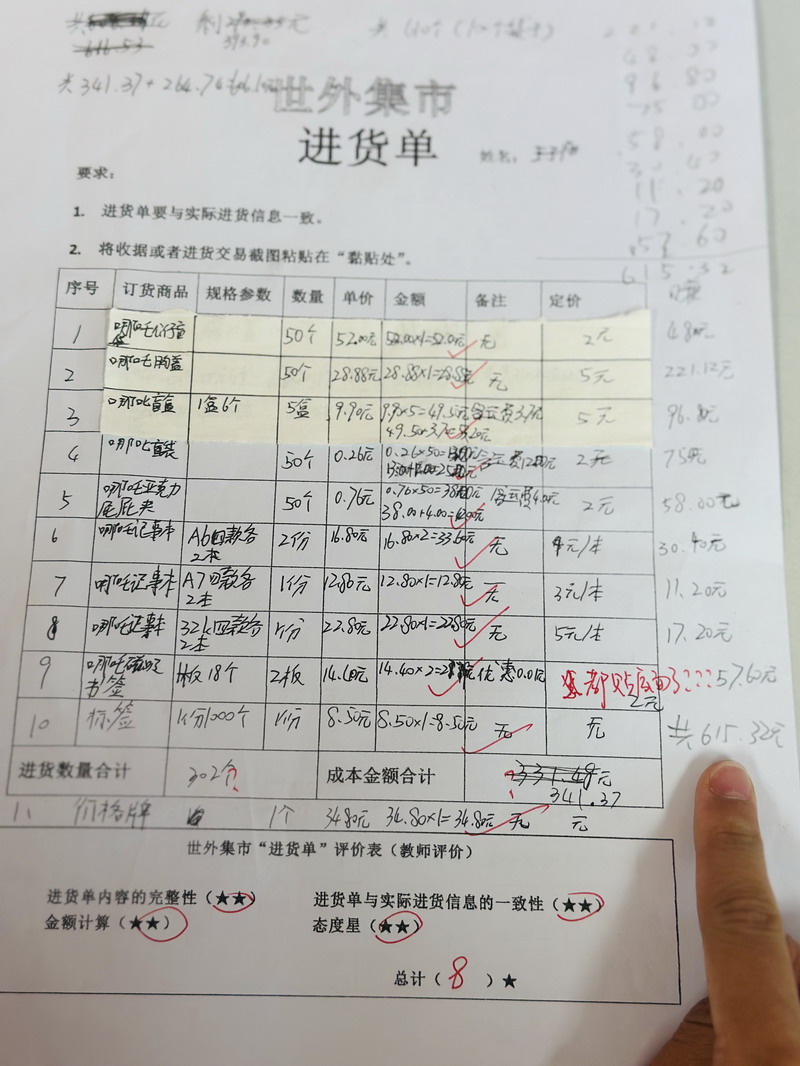 616.53
共341.37+264.74
世外集市
进货单
姓名:
要求:
1. 进货单要与实际进货信息一致。
2. 将收据或者进货交易截图粘贴在“黏贴处”。
48.00
96.80
75.00
58.00
30.40
11.20
17.20
57.60
615.32
序号 订货商品 规格参数 数量 单价 金额 备注 定价
1 哪吒 50个 52.00元 52.00×1=52.0元 无 2元 48元
2 哪吒胸盖 50个 28.88元 28.88×1=28.88元 无 5元 221.12元
3 哪吒盲盒 1盒6个 5盒 9.90元 9.9×5=49.5元 含运费3.7元 5元 96.80元
49.50+3.7=53.20元
4 哪吒盲袋 50个 0.26元 0.26×50=13.00元 含运费12.00元 2元 75元
13.00+12.00=25.00元
5 哪吒亚克力 50个 0.76元 0.76×50=38.00元 含运费4.00元 2元 58.00元
屁屁夹 38.00+4.00=42.00元
6 哪吒记事本 A6四款各 2份 16.80元 16.80×2=33.60元 无 4元/本 30.40元
2本
7 哪吒记事本 A7四款各 1份 12.80元 12.80×1=12.80元 无 3元/本 11.20元
2本
8 哪吒记事本 32k四款各 1份 22.80元 22.80×1=22.80元 无 5元/本 17.20元
2本
9 哪吒磁吸 1板18个 2板 14.40元 14.40×2=28.8元 优惠0.01元 都贴后面了??? 57.60元
书签 2元
10 标签 1份1000个 1份 8.50元 8.50×1=8.50元 无 无 共615.32元
进货数量合计 302个? 成本金额合计 331.49元
? 341.37
11 价格牌 1个 34.80元 34.80×1=34.80元 无 元
世外集市“进货单”评价表(教师评价)
进货单内容的完整性(★★) 进货单与实际进货信息的一致性(★★)
金额计算(★★) 态度星(★★)
总计(8)★